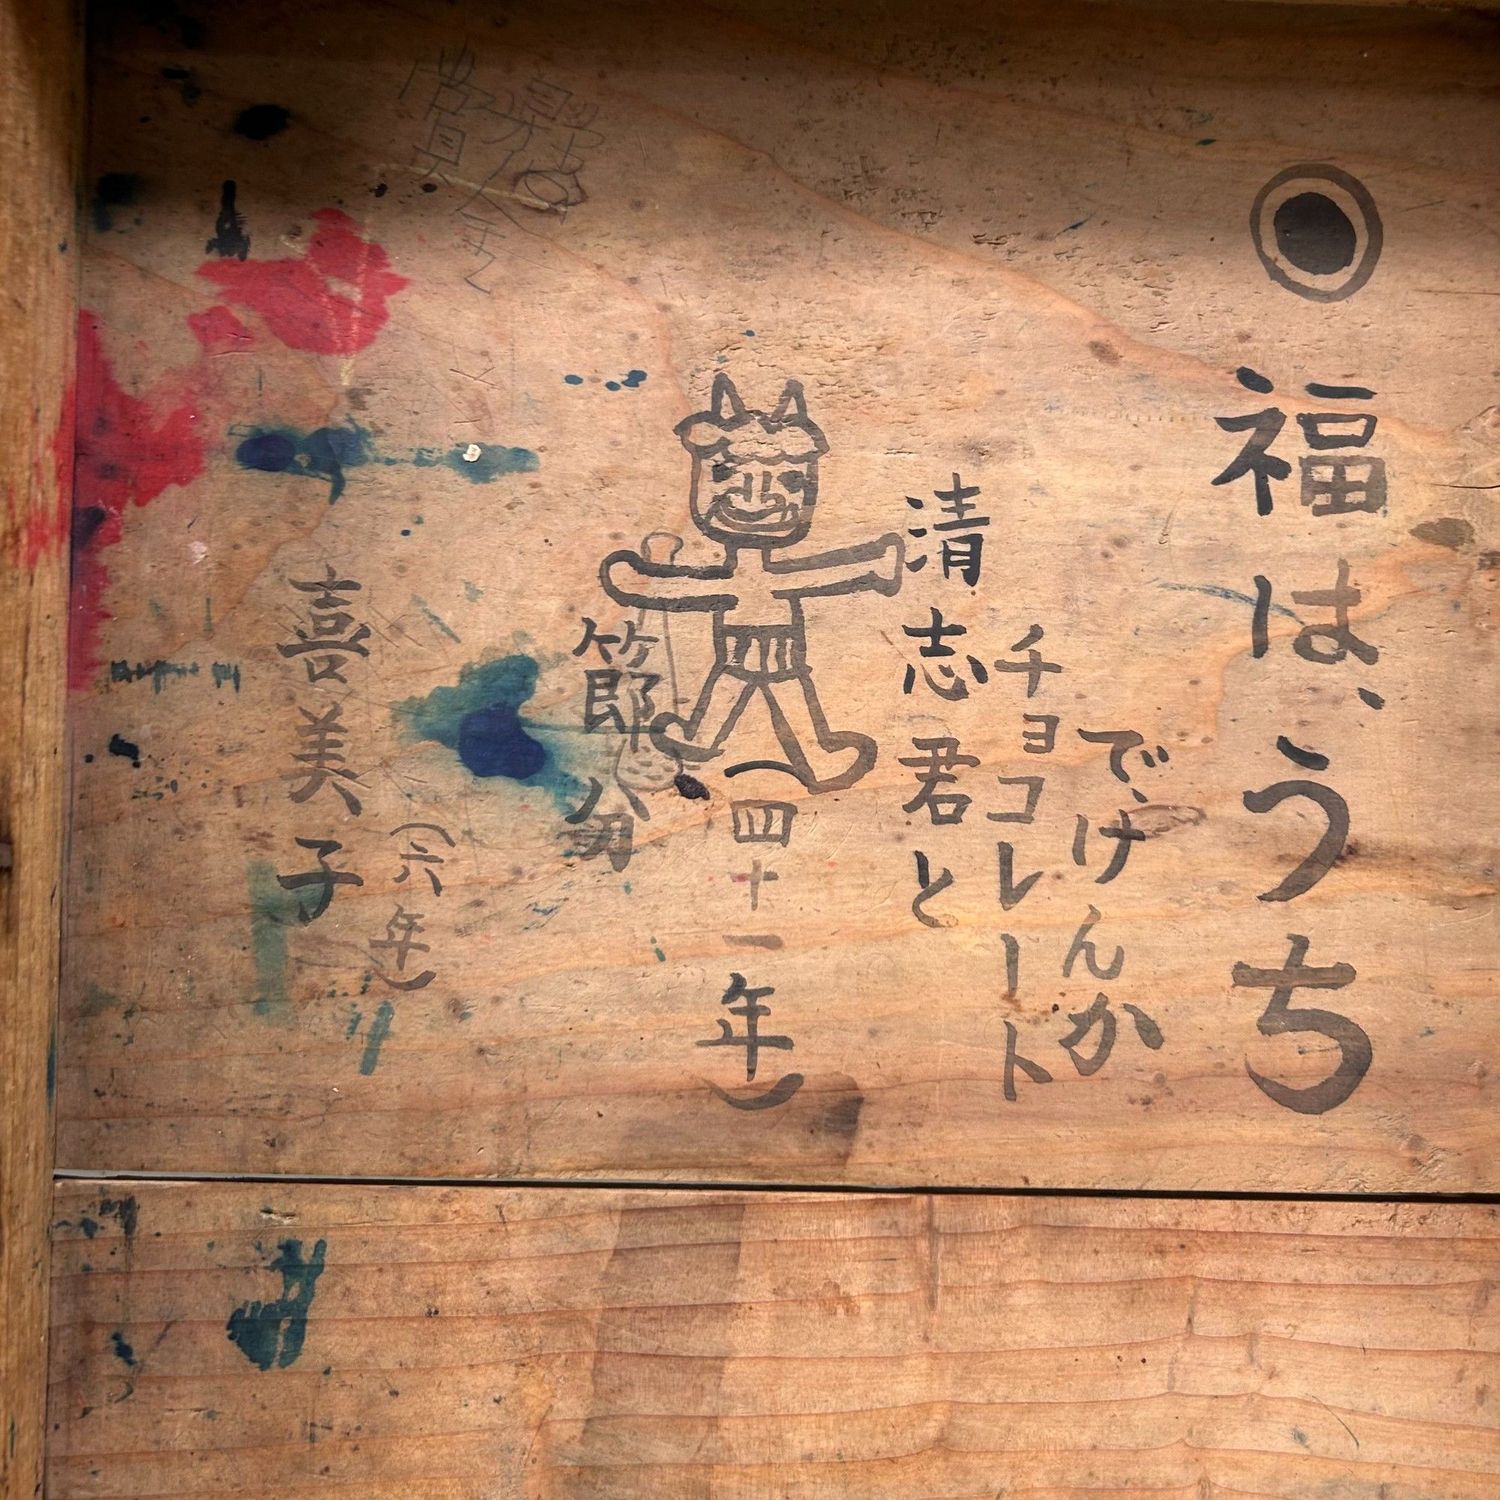 ◉
福は、うち
でけんか
チョコレート
清志君と
（四十一年）
節分
（六年）
喜美子